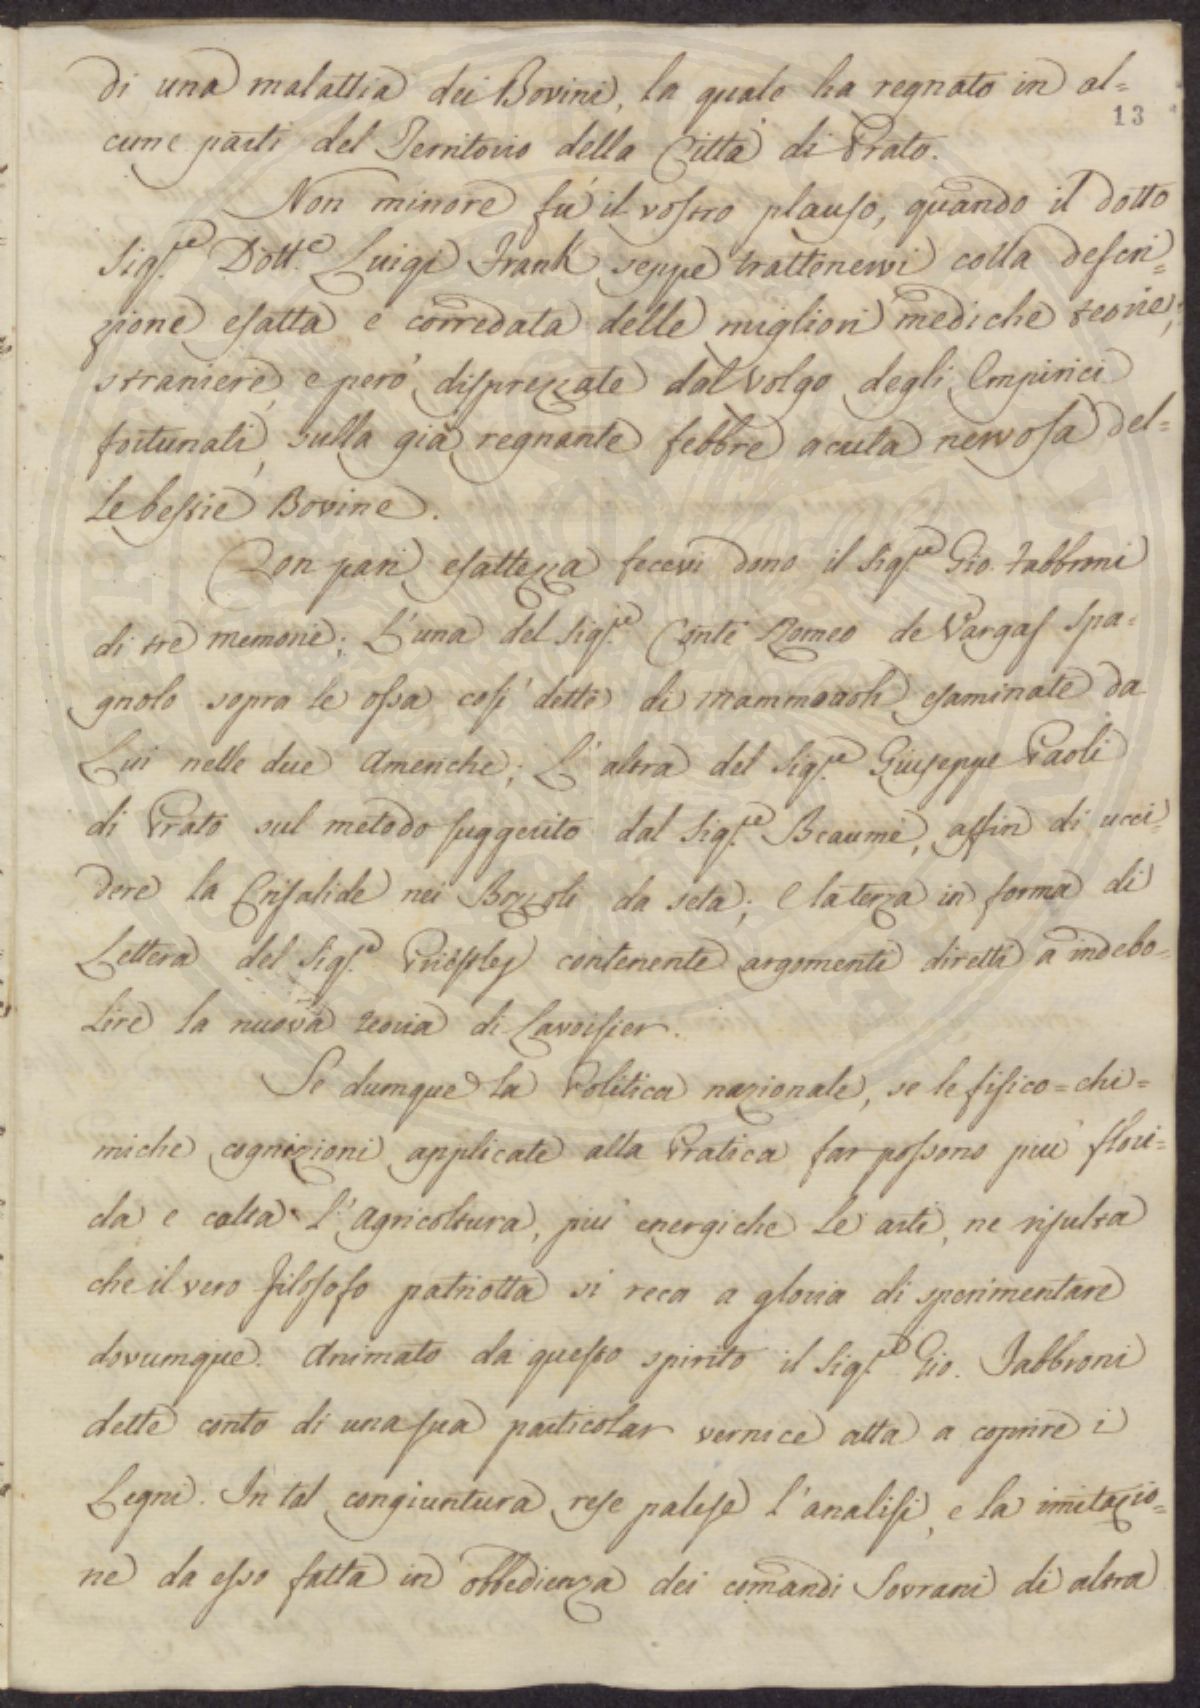 di una malattia dei Bovini, la quale ha regnato in al=
13
cune parti del Territorio della Città di Prato.
Non minore fù il vostro plauso, quando il dotto
Sig.re Dott.e Luigi Frank seppe trattenervi colla descri=
zione esatta e corredata delle migliori mediche teorie,
straniere, e però disprezzate dal volgo degli Empirici
fortunati, sulla già regnante febbre acuta nervosa del=
le bestie Bovine.
Con pari esattezza fecevi dono il Sig.re Gio. Fabbroni
di tre memorie; L'una del Sig.re Conte Romeo de Vargas Spa=
gnolo sopra le ossa così dette di mammouth esaminate da
Lui nelle due Americhe; L'altra del Sig.re Giuseppe Paoli
di Prato sul metodo suggerito dal Sig.re Beaumé, affin di ucci=
dere la Crisalide nei Bozzoli da seta; e la terza in forma di
Lettera del Sig.re Priestley contenente argomenti diretti a indebo=
lire la nuova teoria di Lavoisier.
Se dumque la Politica nazionale, se le fisico=chi=
miche cognizioni applicate alla Pratica far possono più flori=
da e colta l'agricoltura, più energiche le arti, ne risulta
che il vero filosofo patriotta si reca a gloria di sperimentare
dovumque. Animato da questo spirito il Sig.re Gio. Fabbroni
dette conto di una sua particolar vernice atta a coprire i
Legni. In tal congiuntura rese palese l'analisi, e la imitazio=
ne da esso fatta in obbedienza dei comandi Sovrani di altra